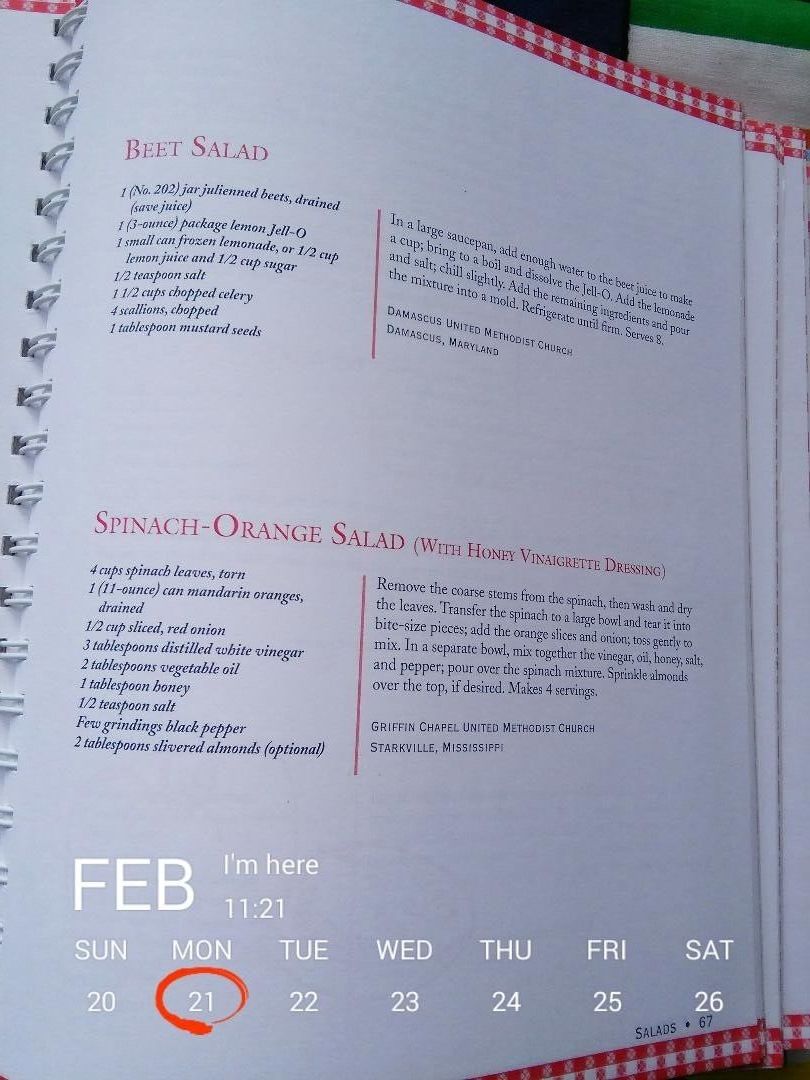 BEET SALAD
1 (No. 202) jar julienned beets, drained
(save juice)
1 (3-ounce) package lemon Jell-O
1 small can frozen lemonade, or 1/2 cup
lemon juice and 1/2 cup sugar
1/2 teaspoon salt
1 1/2 cups chopped celery
4 scallions, chopped
1 tablespoon mustard seeds
In a large saucepan, add enough water to the beet juice to make
a cup; bring to a boil and dissolve the Jell-O. Add the lemonade
and salt; chill slightly. Add the remaining ingredients and pour
the mixture into a mold. Refrigerate until firm. Serves 8.
DAMASCUS UNITED METHODIST CHURCH
DAMASCUS, MARYLAND
SPINACH-ORANGE SALAD (WITH HONEY VINAIGRETTE DRESSING)
4 cups spinach leaves, torn
1 (11-ounce) can mandarin oranges,
drained
1/2 cup sliced, red onion
3 tablespoons distilled white vinegar
2 tablespoons vegetable oil
1 tablespoon honey
1/2 teaspoon salt
Few grindings black pepper
2 tablespoons slivered almonds (optional)
Remove the coarse stems from the spinach, then wash and dry
the leaves. Transfer the spinach to a large bowl and tear it into
bite-size pieces; add the orange slices and onion; toss gently to
mix. In a separate bowl, mix together the vinegar, oil, honey, salt,
and pepper; pour over the spinach mixture. Sprinkle almonds
over the top, if desired. Makes 4 servings.
GRIFFIN CHAPEL UNITED METHODIST CHURCH
STARKVILLE, MISSISSIPPI
FEB
I'm here
11:21
SUN MON TUE WED THU FRI SAT
20 21 22 23 24 25 26
SALADS • 67